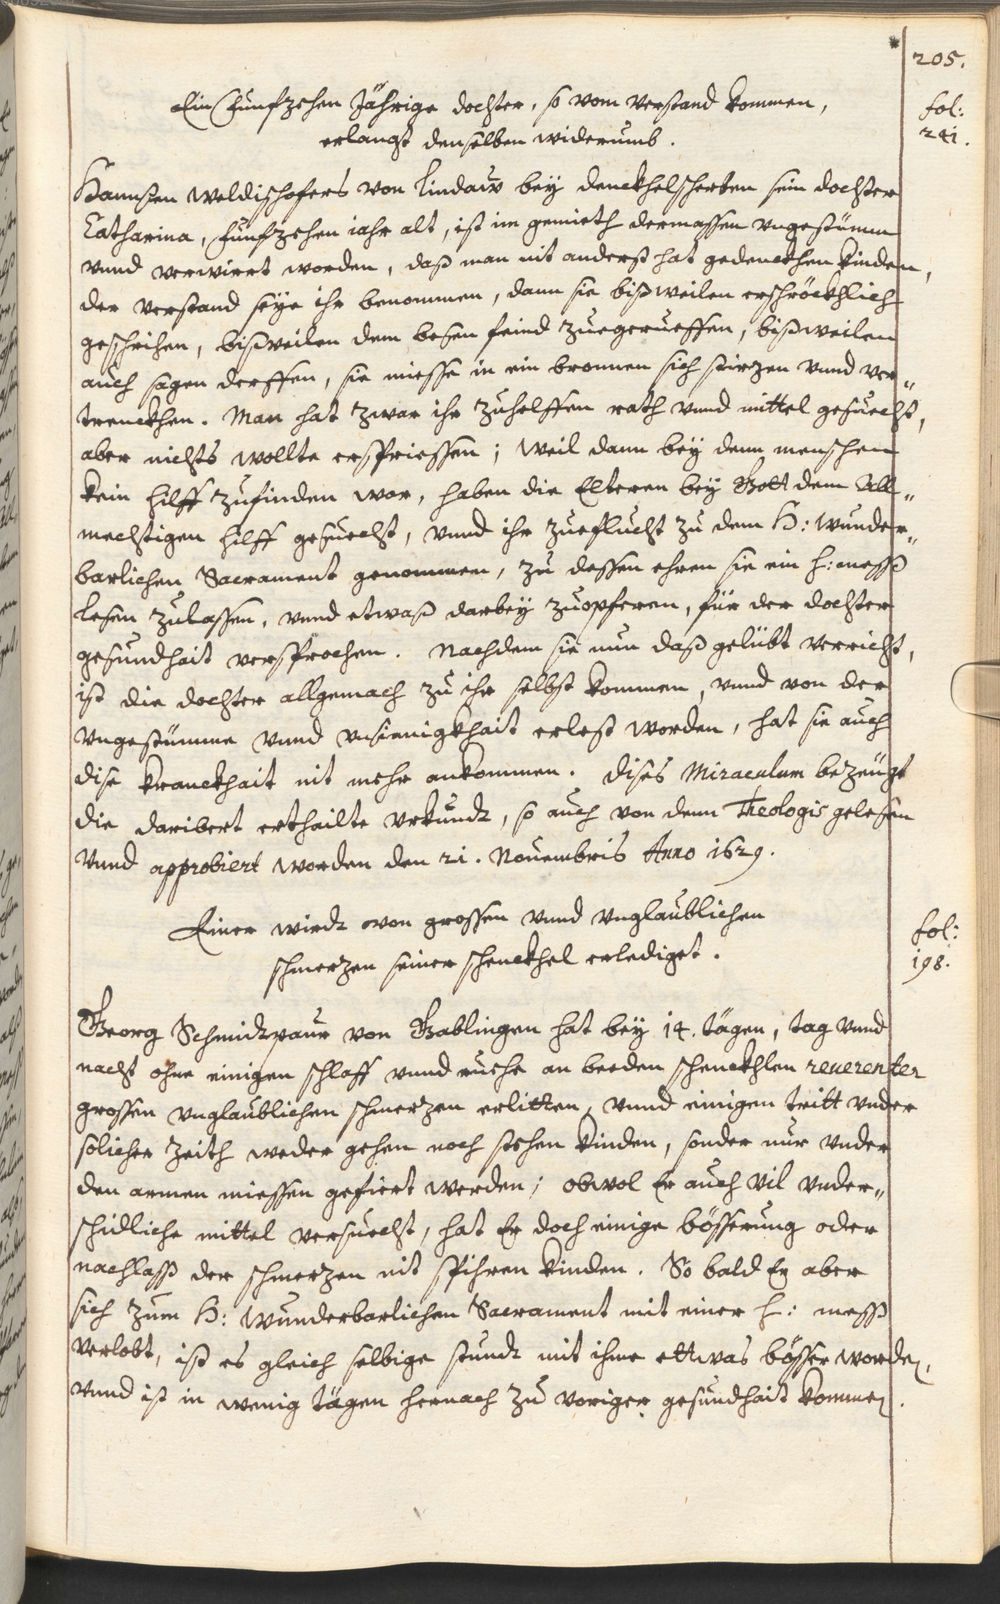 205.
Ein Funfzehen Jährige dochter, so vom verstand kommen,
erlangt denselben widerumb.
fol:
241.
Hannsen Waldisshofers von Lindaw bey denckhelscherben sein dochter
Catharina, funfzehen iahr alt, ist im gemieth dermassen vngestümm
vnnd verwirrt worden, daß man nit anderst hat gedenckhen kinden,
der verstand seye ihr benommen, dann sie bißweilen erschröckhlich
geschrihen, bißweilen dem besen feind zuegerueffen, bißweilen
auch sagen derffen, sie miesse in ein bronnen sich stirzen vnnd ver„
trenckhen. Man hat zwar ihr zuhelffen rath vnnd mittel gesuecht,
aber nichts wollte ersprießen; weil dann bey denn menschen
kein hilff zufinden war, haben die Elteren bey Gott dem All„
mechtigen hilff gesuecht, vnnd ihr zueflucht zu dem H: Wunder„
barlichen Sacrament genommen, zu dessen ehren sie ein h: mess
lesen zulassen, vnnd etwaß darbey zuopferen, für der dochter
gesundhait versprochen. Nachdem sie nun daß gelübt verricht,
ist die dochter allgemach zu ihr selbst kommen, vnnd von der
vngestümme vnnd vnsinnigkhait erlest worden, hat sie auch
dise kranckhait nit mehr ankommen. Dises Miraculum bezeugt
die daribert erthailte vrkundt, so auch von denn Theologis gelesen
vnnd approbiert worden den 21. Nouembris Anno 1629.
Einer wirdt von grossen vnnd vnglaublichen
schmerzen seiner schenckhel erlediget.
fol:
198.
Georg Schmidtpaur von Gablingen hat bey 14. tägen, tag vnnd
nacht ohne einigen schlaff vnnd ruehe an beeden schenckhlen reuerenter
grossen vnglaublichen schmerzen erlitten, vnnd einigen tritt vnder
solicher zeith weder gehen noch stehen kinden, sonder nur vnder
den armen miessen gefiert werden; obwol Er auch vil vnder„
schidliche mittel versuecht, hat Er doch einige bösserung oder
nachlaß der schmerzen nit spihren kinden. So bald Er aber
sich zum H: Wunderbarlichen Sacrament mit einer h: mess
verlobt, ist es gleich selbige stundt mit ihme ettwas bösser worden,
vnnd ist in wenig tägen hernach zu voriger gesundhait kommen.